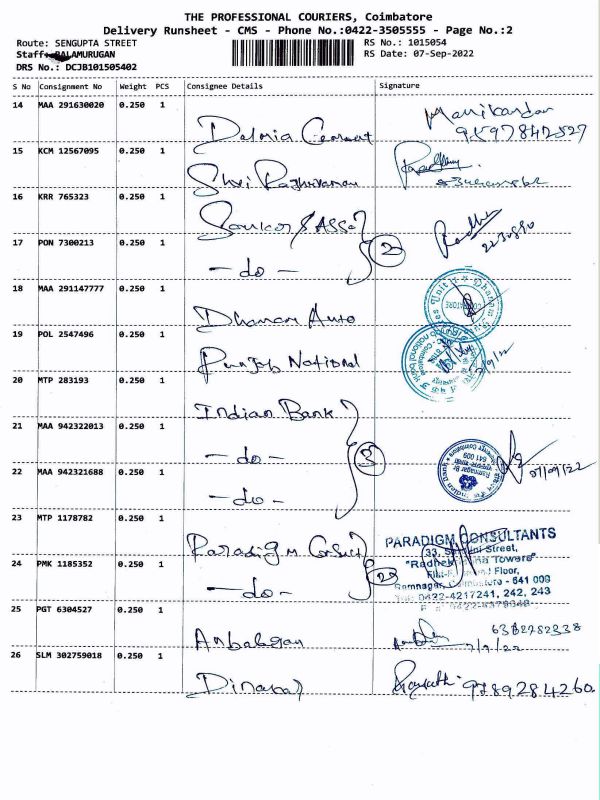 THE PROFESSIONAL COURIERS, Coimbatore
Delivery Runsheet - CMS - Phone No.:0422-3505555 - Page No.:2
Route: SENGUPTA STREET
RS No.: 1015054
Staff: BALAMURUGAN
RS Date: 07-Sep-2022
DRS No.: DCJB101505402
S No Consignment No Weight PCS Consignee Details Signature
14 MAA 291630020 0.250 1 Dalmia Cement Manikandan
15 KCM 12567095 0.250 1 Shri
16 KRR 765323 0.250 1 Sankar & Asso
17 PON 7300213 0.250 1 - do - 2
18 MAA 291147777 0.250 1 Auto
19 POL 2547496 0.250 1 Punjab National
20 MTP 283193 0.250 1 Indian Bank
21 MAA 942322013 0.250 1 - do - 3
22 MAA 942321688 0.250 1 - do - 07/09/22
23 MTP 1178782 0.250 1 Paradigm Consult
PARADIGM CONSULTANTS
Street,
Towers"
24 PMK 1185352 0.250 1 - do - 2
Floor,
Ramnagar, Coimbatore - 641 009
0422-4217241, 242, 243
25 PGT 6304527 0.250 1 Anbalagan
7/9/22
26 SLM 302759018 0.250 1 9789284260